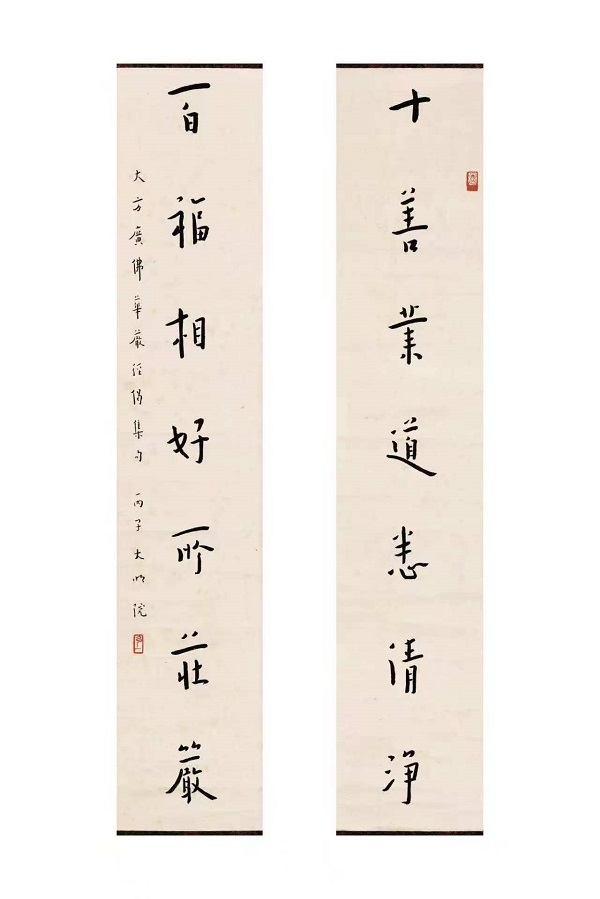 十善業道悉清淨
百福相好所莊嚴
大方廣佛華嚴經偈集句 丙子大明院